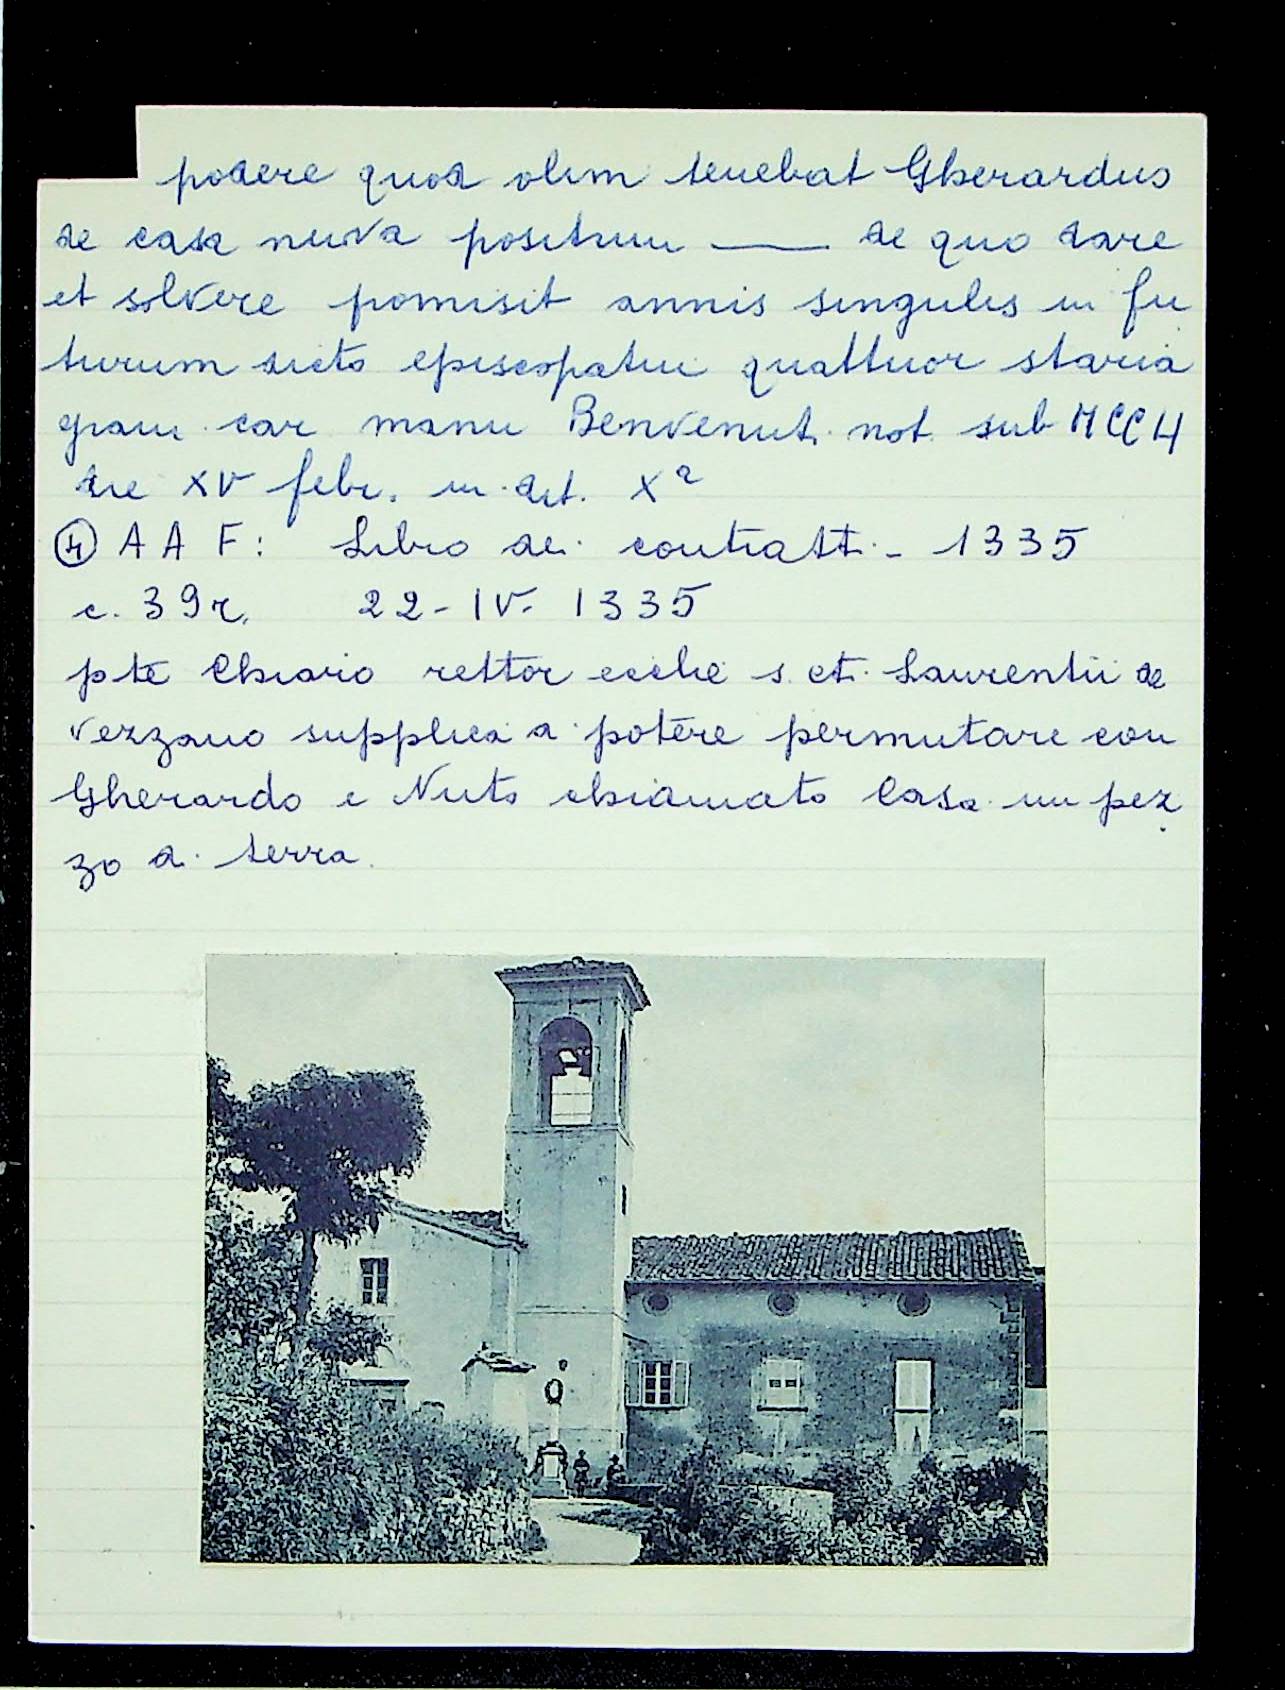 podere quod olim tenebat Gherardus
de casa nuova positum —— de quo dare
et solvere pomisit annis singulis in fu
turum dicto episcopatui quattuor staria
grani car manu Benvenut. not. sub MCC
die XV febr. in X
④ A A F: Libro dei contratti - 1335
c. 39r. 22-IV- 1335
pte Chiaro rettor ecclie s. ct. Laurentii de
Vezzano supplica a potere permutare con
Gherardo e Nuto chiamato Casa un pez
zo di terra.